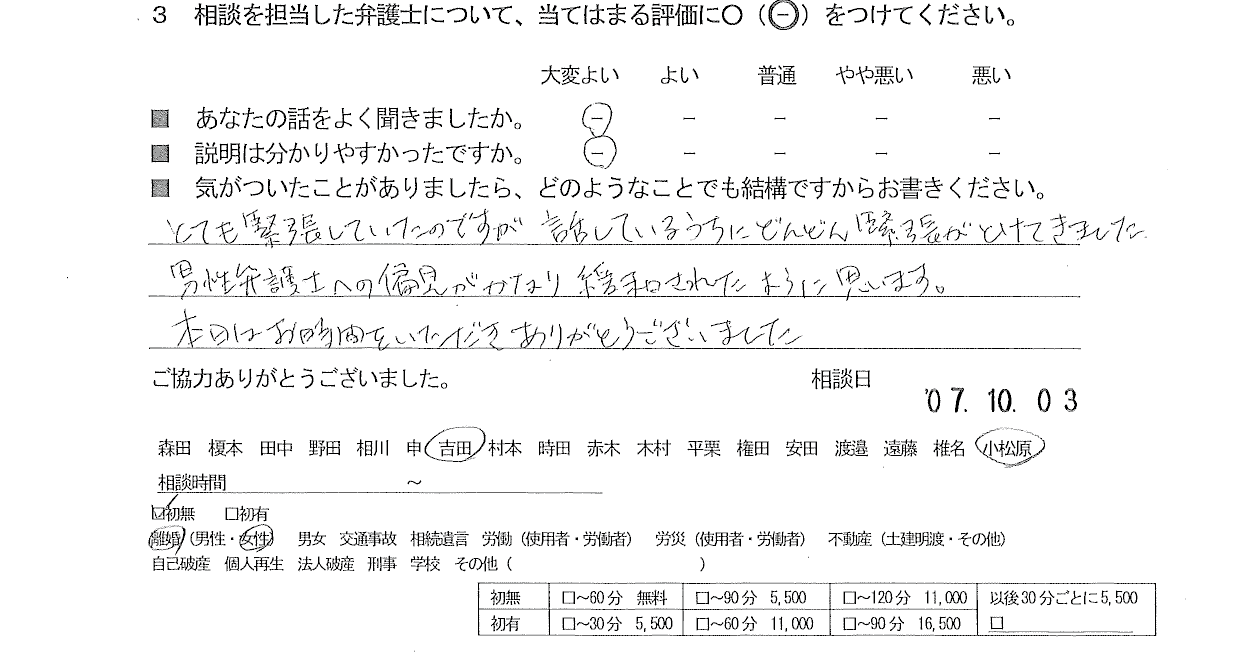 3 相談を担当した弁護士について、当てはまる評価に○(⊖)をつけてください。
大変よい よい 普通 やや悪い 悪い
■ あなたの話をよく聞きましたか。 − − − − −
■ 説明は分かりやすかったですか。 − − − − −
■ 気がついたことがありましたら、どのようなことでも結構ですからお書きください。
とても緊張していたのですが 話しているうちにどんどん緊張がとけてきました
男性弁護士への偏見がかなり緩和されたように思います。
本日はお時間をいただきありがとうございました
ご協力ありがとうございました。 相談日
'07.10.03
森田 榎本 田中 野田 相川 申 吉田 村本 時田 赤木 木村 平栗 権田 安田 渡邉 遠藤 椎名 小松原
相談時間 ～
☑初無 □初有
離婚(男性・女性) 男女 交通事故 相続遺言 労働(使用者・労働者) 労災(使用者・労働者) 不動産(土建明渡・その他)
自己破産 個人再生 法人破産 刑事 学校 その他( )
初無 □～60分 無料 □～90分 5,500 □～120分 11,000 以後30分ごとに5,500
初有 □～30分 5,500 □～60分 11,000 □～90分 16,500 □